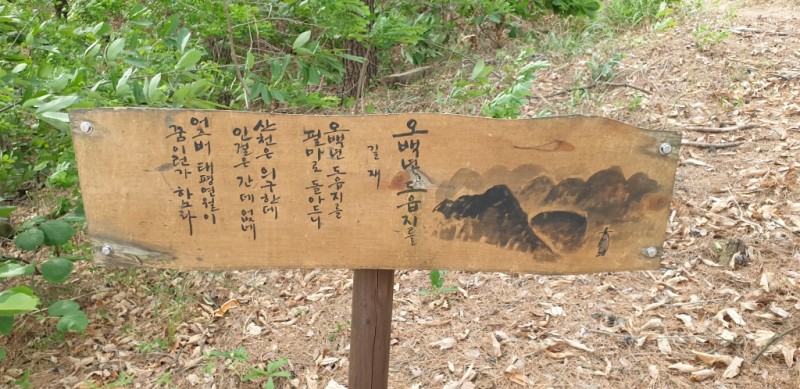 오백년 도읍지를
길재
오백년 도읍지를
필마로 돌아드니
산천은 의구한데
인걸은 간데없네
어즈버 태평연월이
꿈이런가 하노라